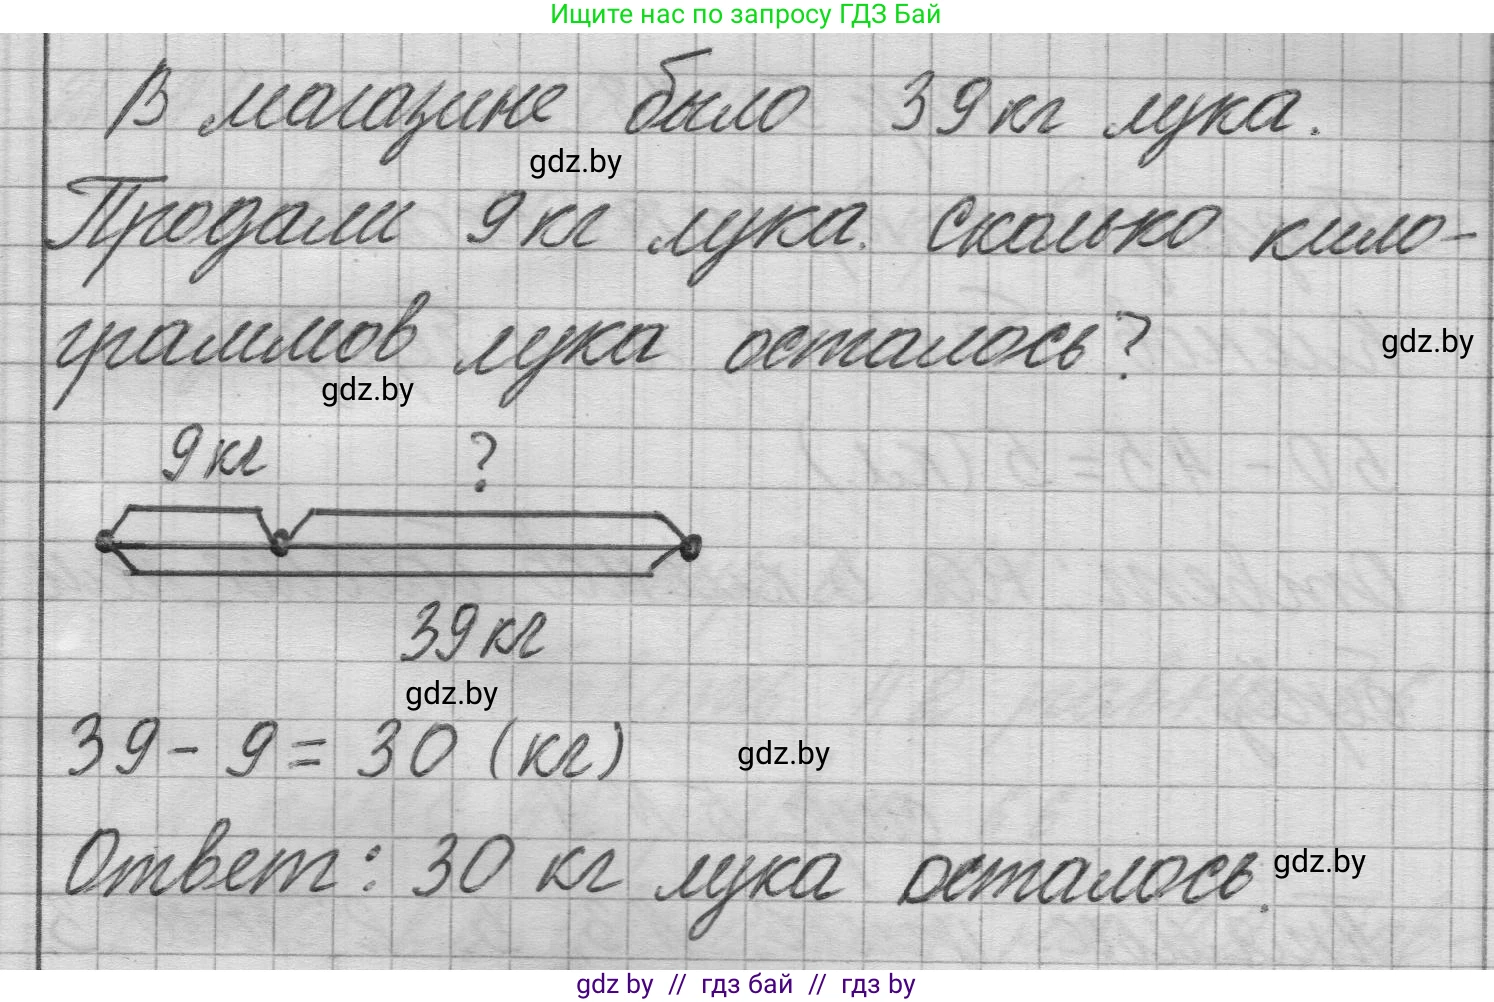 Ищите нас по запросу ГДЗ Бай
В магазине было 39 кг лука.
gdz.by
Продали 9 кг лука. Сколько кило-
граммов лука осталось?
gdz.by
gdz.by
9 кг ?
39 кг
gdz.by
39 - 9 = 30 (кг)
gdz.by
Ответ: 30 кг лука осталось.
gdz.by
gdz by // гдз бай // гдз by